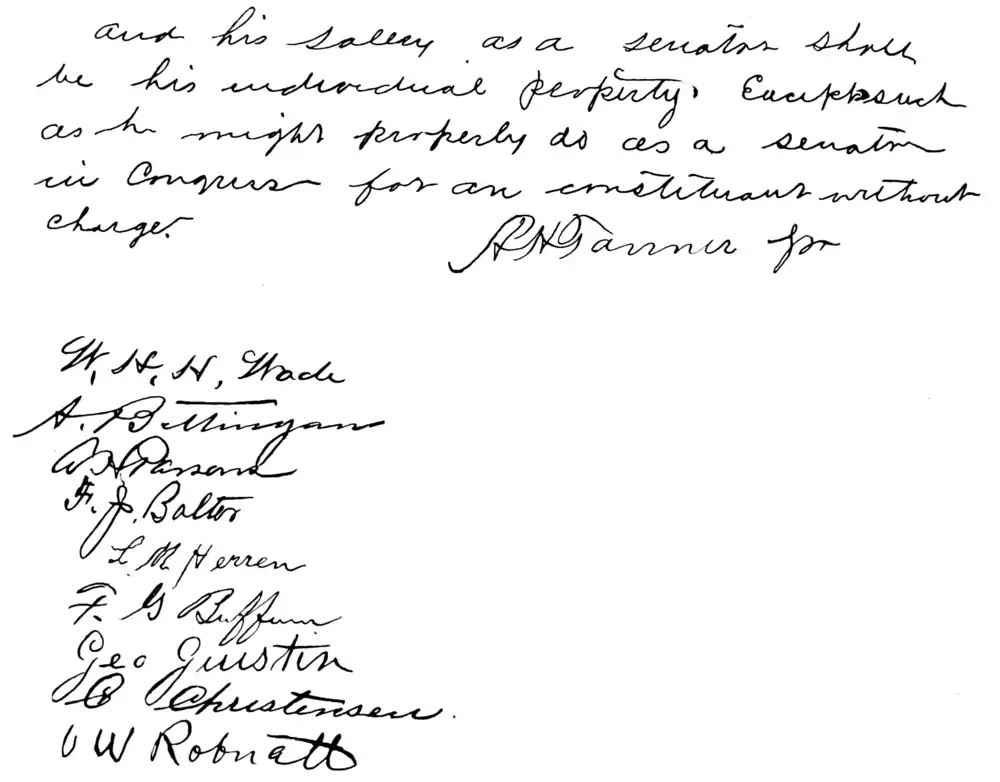 and his sallery as a senator shall
be his individual property. Except such
as he might properly do as a senator
in Congress for an constituant without
charge.
A H Tanner for
W. H. H. Wade
A. Bettingan
W H Parsons
F. J. Balter
L M Herren
F. G Buffum
Geo Giustin
C Christensen.
O W Robnett